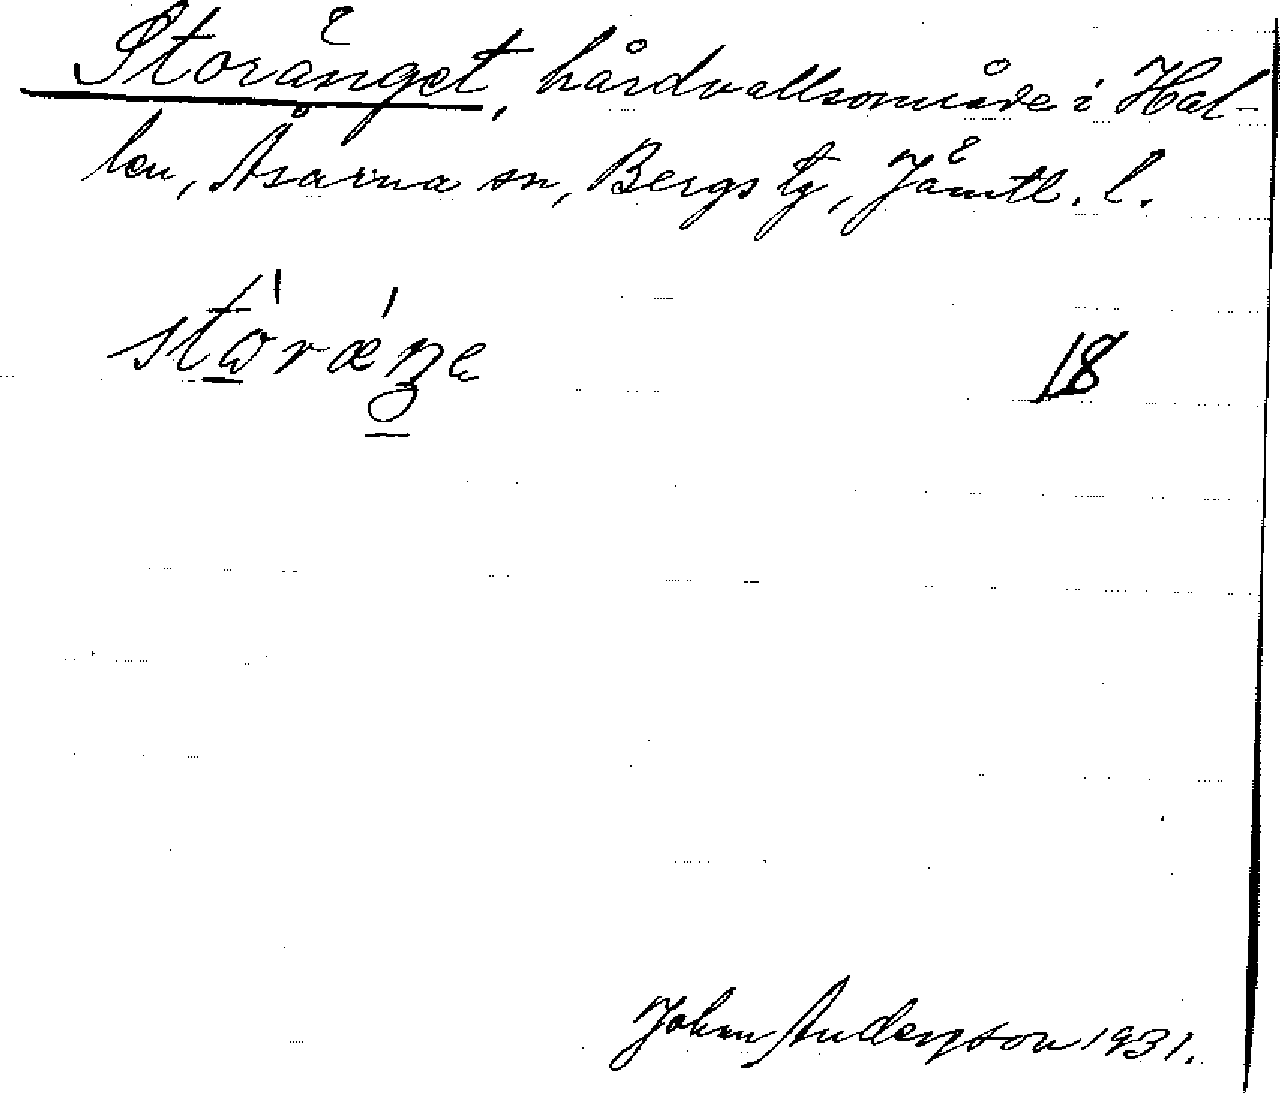 Storänget, hårdvallsområde i Hal-
len, Åsarna sn, Bergs tg, Jämtl. l.
stω̱ˈræˈŋ̱e
18
Johan Anderson 1931.